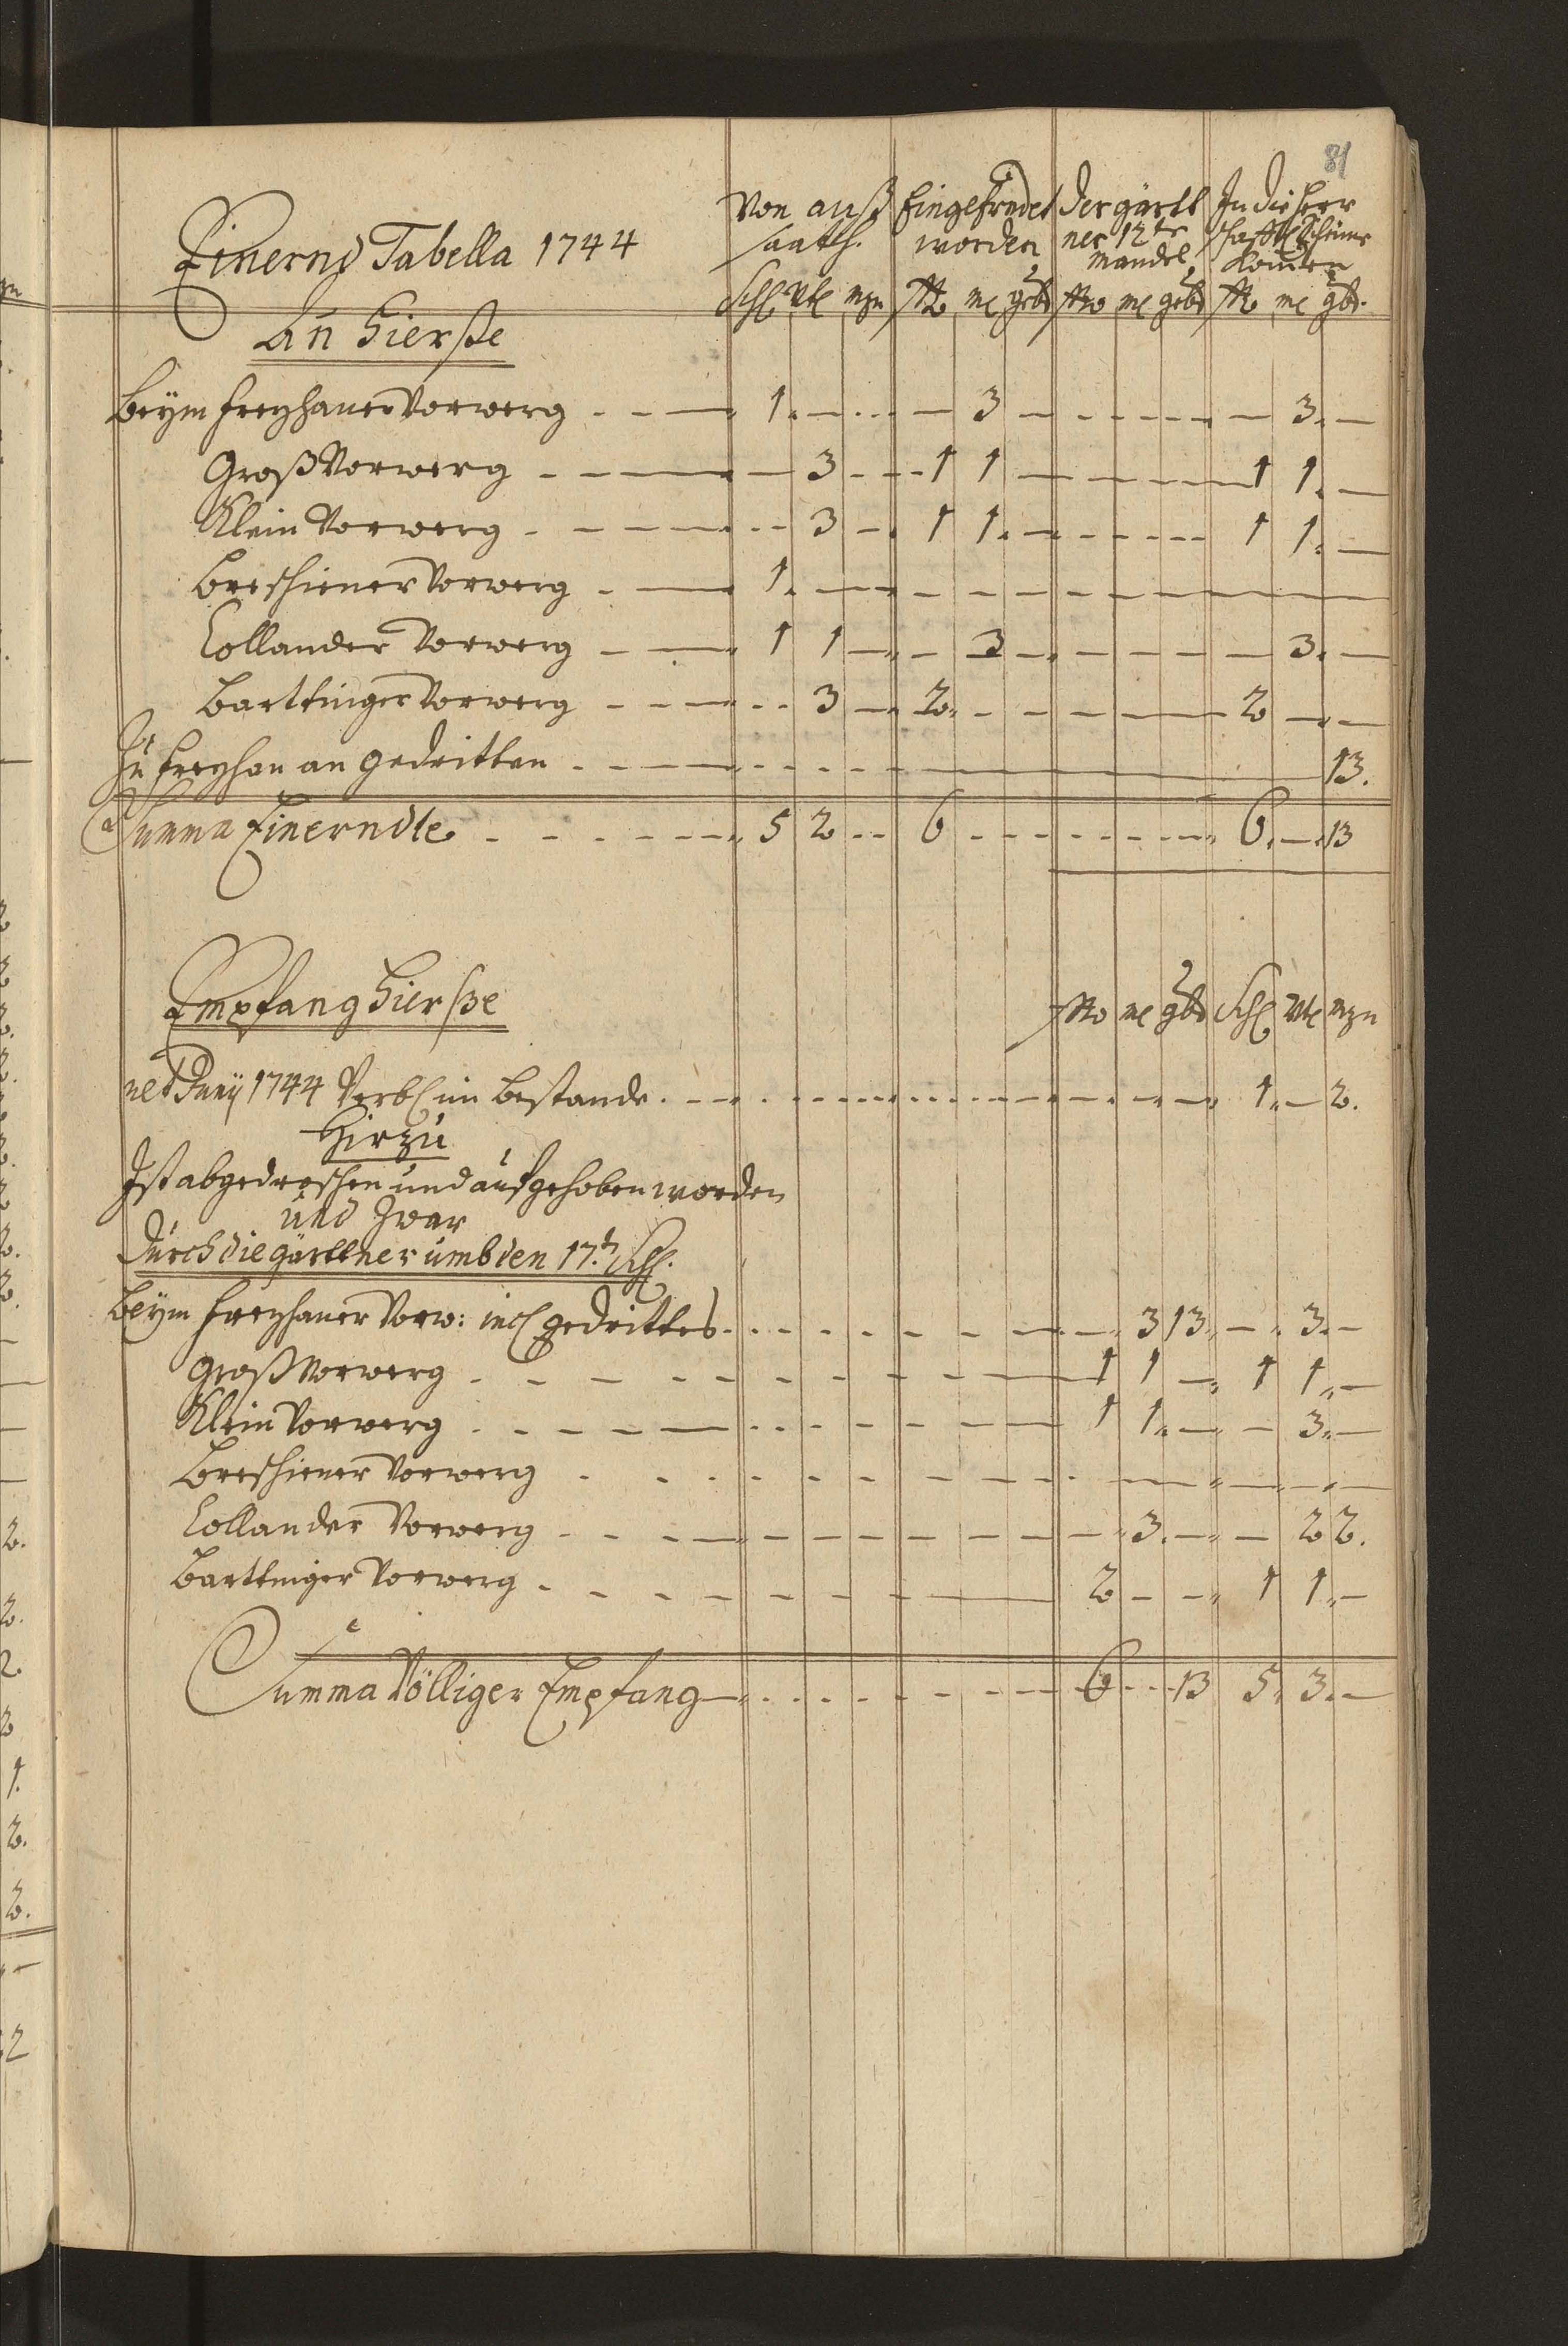 81
Einernd Tabella 1744
Von auß saath. | Eingeerndet worden | der gärtt ner 12te mandel | In die Herr schafftl Scheuer komen
Schl Vtl mzn | ßo ml gbd | ßo ml gbd | ßo ml gbd.
An Hierße
Beym Freyhaner Vorwerg - - — 1. — — 3 — — — 3. —
Groß Vorwerg - - — — 3 - 1 1 — — 1 1. —
Klein Vorwerg - - — - 3 — 1 1. — - - 1 1. —
Breschiener Vorwerg - — 1. — — - - - - -
Collander Vorwerg - — 1 1 — - 3 — - - - 3. —
Barttniger Vorwerg - - — - 3 — 2. - - — 2 — —
Zu Freyhan an gedritten - - — - - - — 13.
Summa Einerndte - - - — 5 2 - - 6 - - - - 6. — 13
Empfang Hierße
ßo ml gbd Schl Vtl mzn
ult Juny 1744 Verbl im Bestande. — - - - - - 1. — 2.
Hirzu
Ist abgedroschen und aufgehoben worden
und zwar
Durch die gärttner umb den 17.t Schl.
Beym Freyhaner Vorw: incl gedrittes - - - - — 3 13 — 3. —
Groß Vorwerg - - - - - — 1 1 — 1 1. —
Klein Vorwerg - - - - - — 1 1. — — 3. —
Breschiener Vorwerg - - - - - - — — — —
Collander Vorwerg - - — - - - — 3. — — 2 2.
Barttniger Vorwerg - - - - - — 2 - - 1 1. —
Summa Völliger Empfang — - - - - 6 - 13 5. 3. —